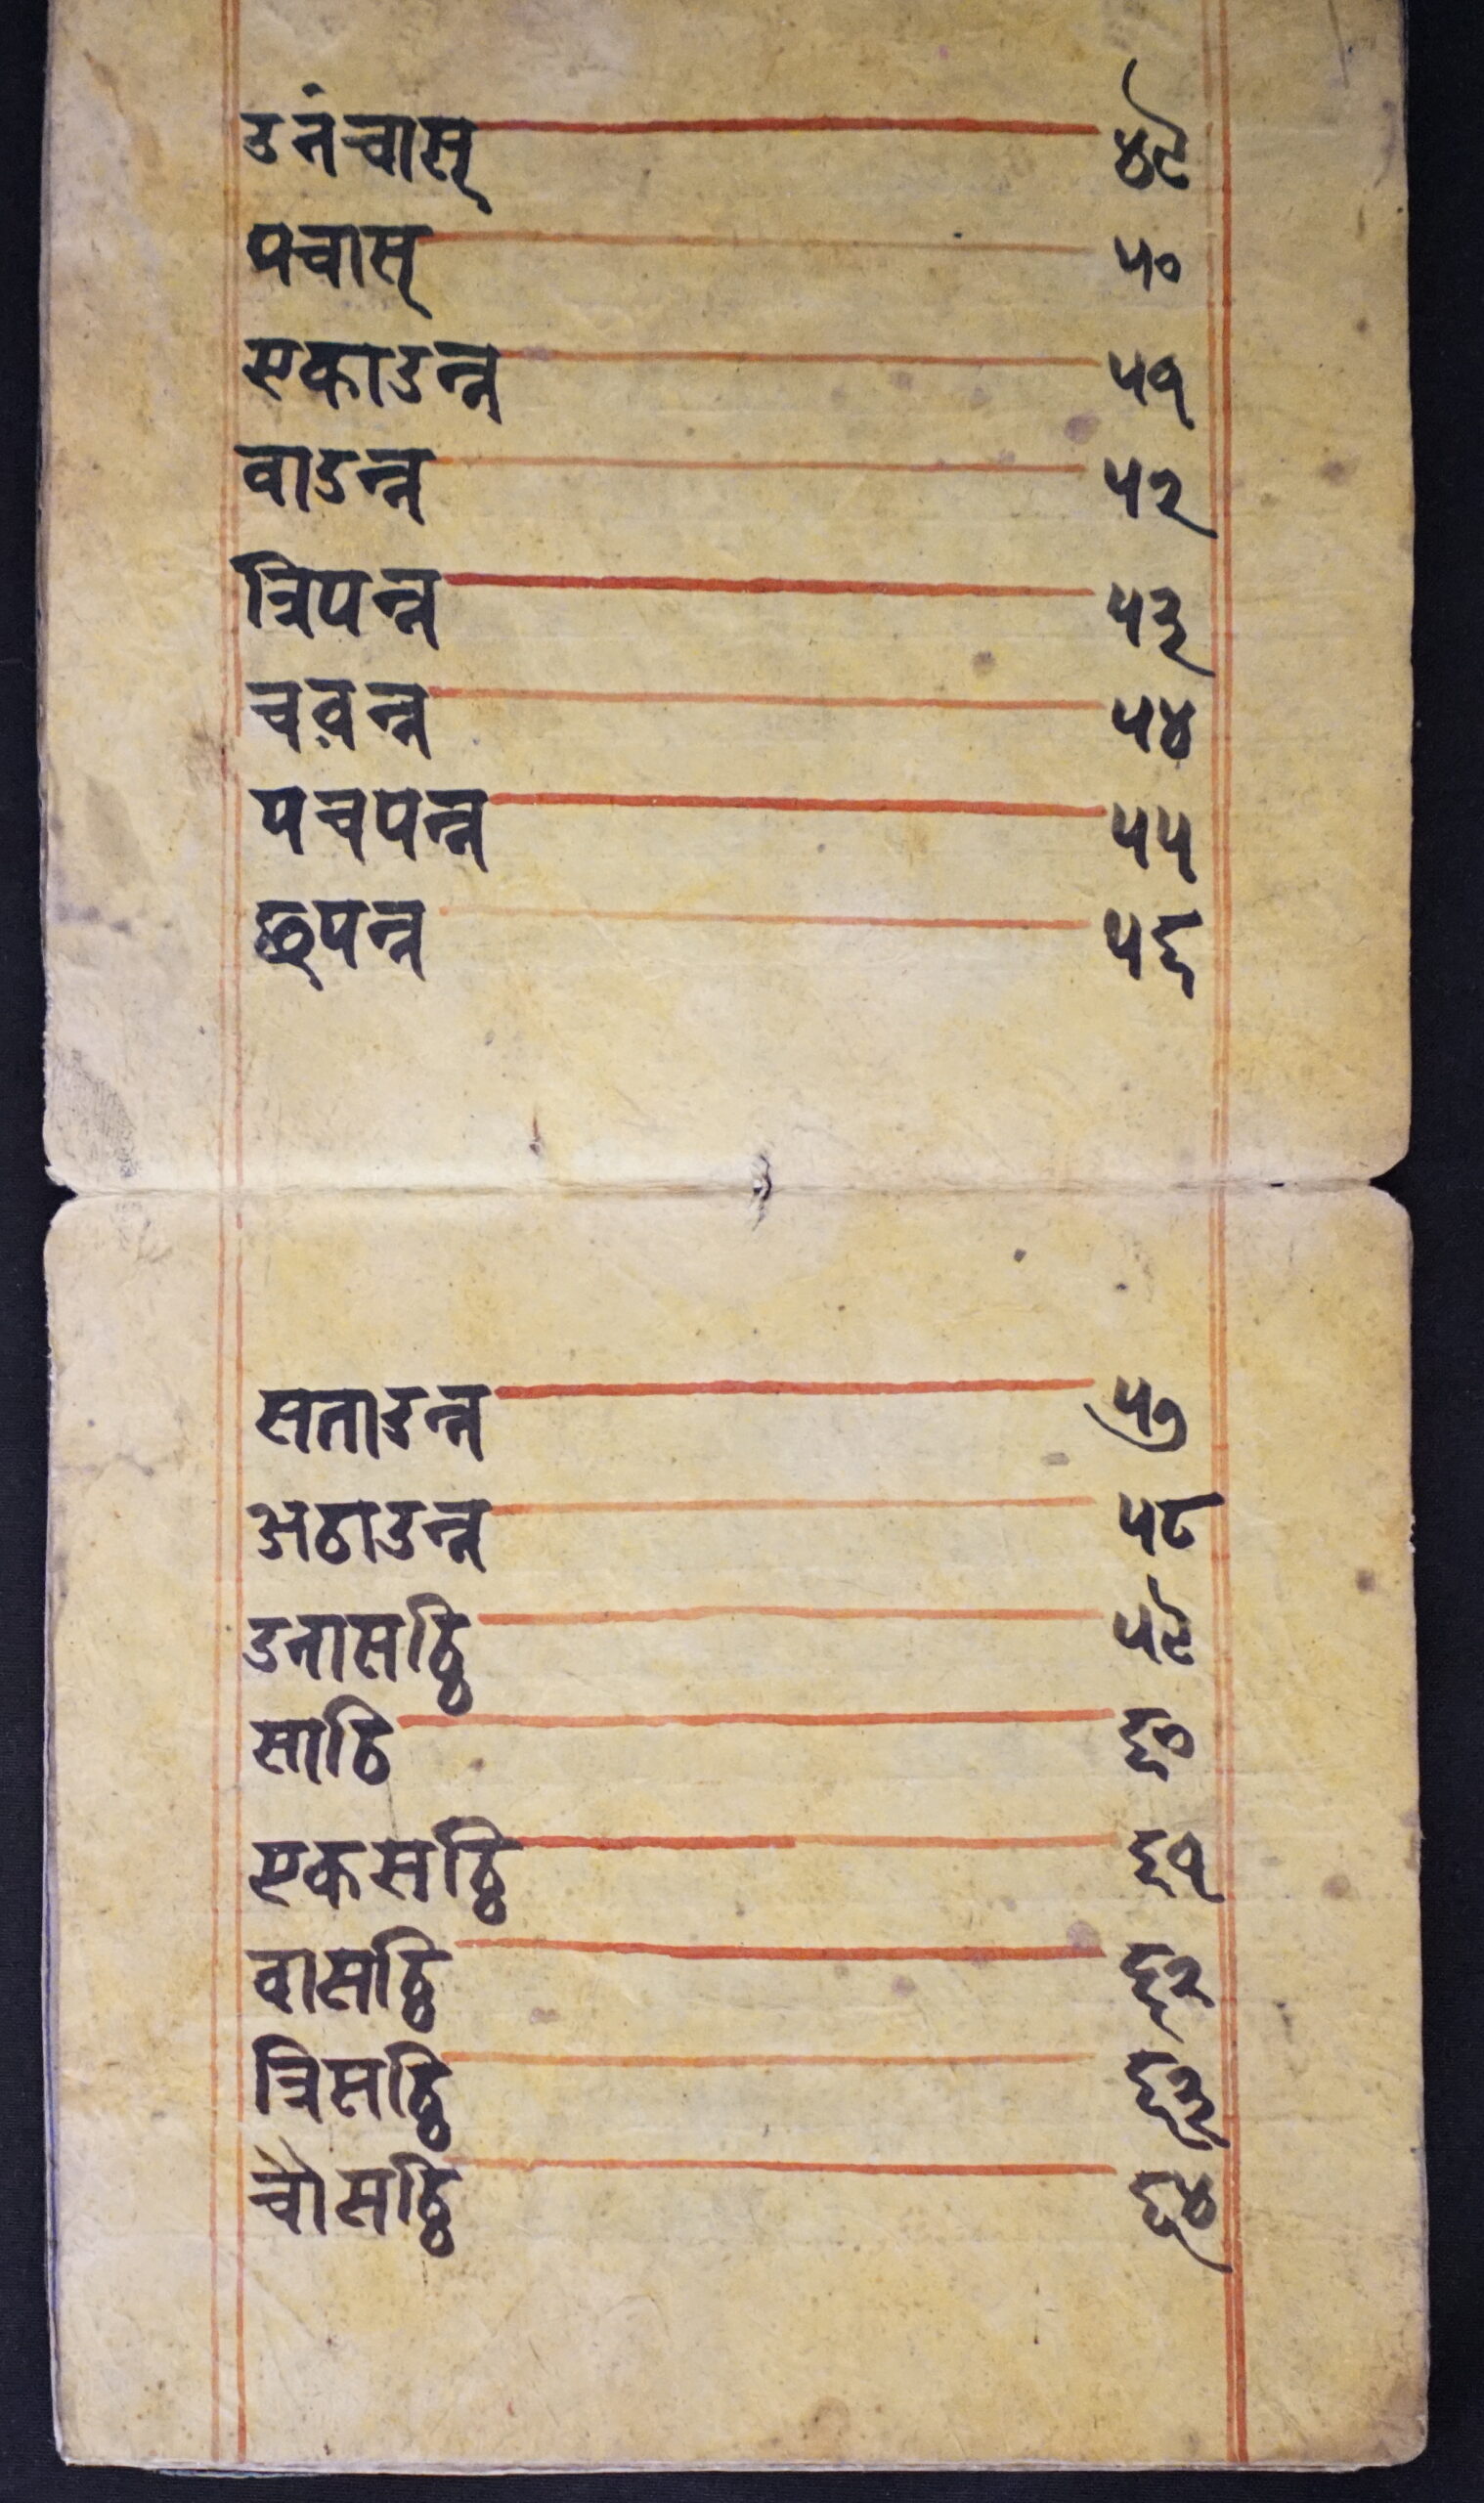 उनंचास् ४९
पचास् ५०
एकाउन्न ५१
वाउन्न ५२
त्रिपन्न ५३
चव़न्न ५४
पचपन्न ५५
छपन्न ५६
सताउन्न ५७
अठाउन्न ५८
उनासठ्ठि ५९
साठि ६०
एकसठ्ठि ६१
वासठ्ठि ६२
त्रिसठ्ठि ६३
चौसठ्ठि ६४